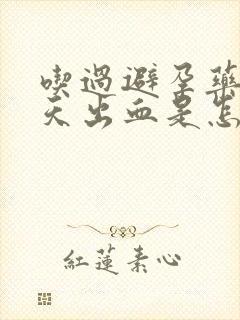 喫過避孕藥
天出血是怎
紅蓮素心